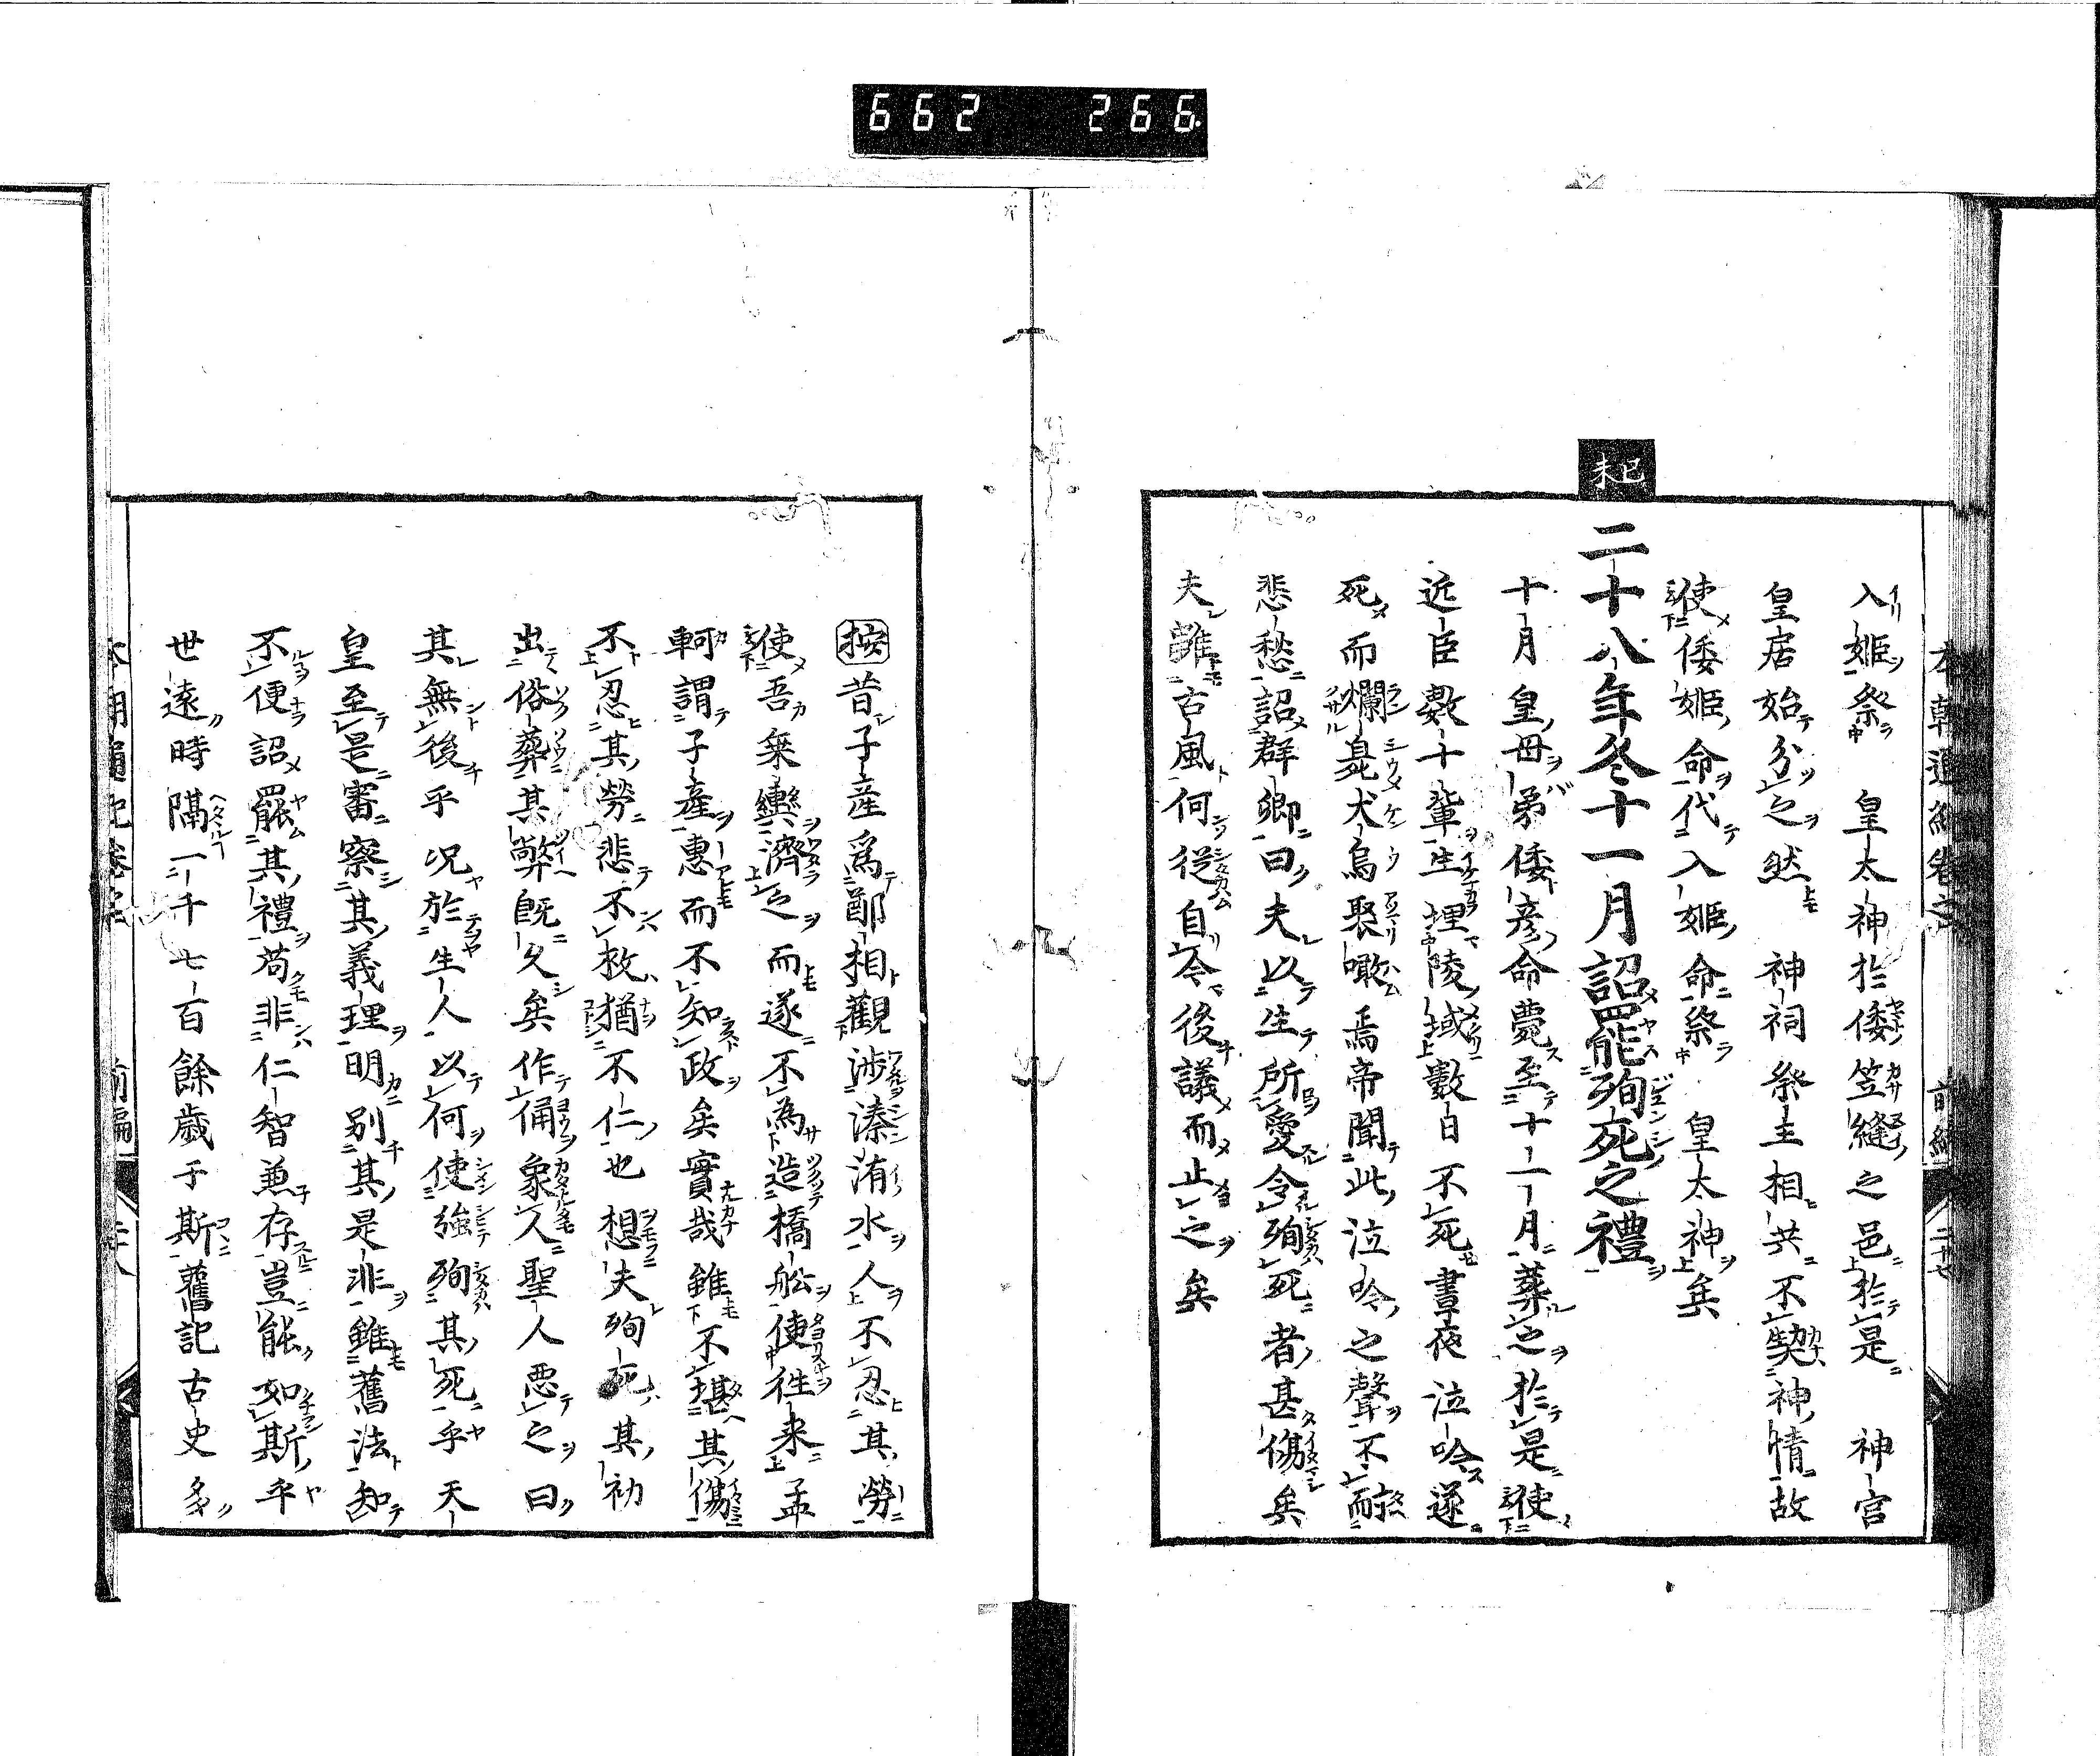 662 266.
入姬祭 皇太神於倭笠縫之邑於是 神宮
皇居始分之然 神祠祭主相共不契神情故
使倭姬命代入姬命祭 皇太神矣
己未
二十八年冬十一月詔罷殉死之禮
十月皇母弟倭彦命薨至十一月葬之於是使
近臣數十輩生埋陵域數日不死晝夜泣吟遂
死而爛臭犬烏聚噉焉帝聞此泣吟之聲不耐
悲愁詔群卿曰夫以生所愛令殉死者甚傷矣
夫雖古風何從自今後議而止之矣
按昔子産爲鄭相觀渉溱洧水人不忍其勞
使吾乗輿濟之而遂不為造橋舩使徃来孟
軻謂子産惠而不知政矣實哉雖不堪其傷
不忍其勞悲不救猶不仁也想夫殉死其初
出俗葬其弊既久矣作俑象人聖人悪之曰
其無後乎况於生人以何使強殉其死乎天
皇至是審察其義理明别其是非雖舊法知
不便詔罷其禮苟非仁智兼存豈能如斯乎
世遠時隔一千七百餘歳于斯舊記古史多